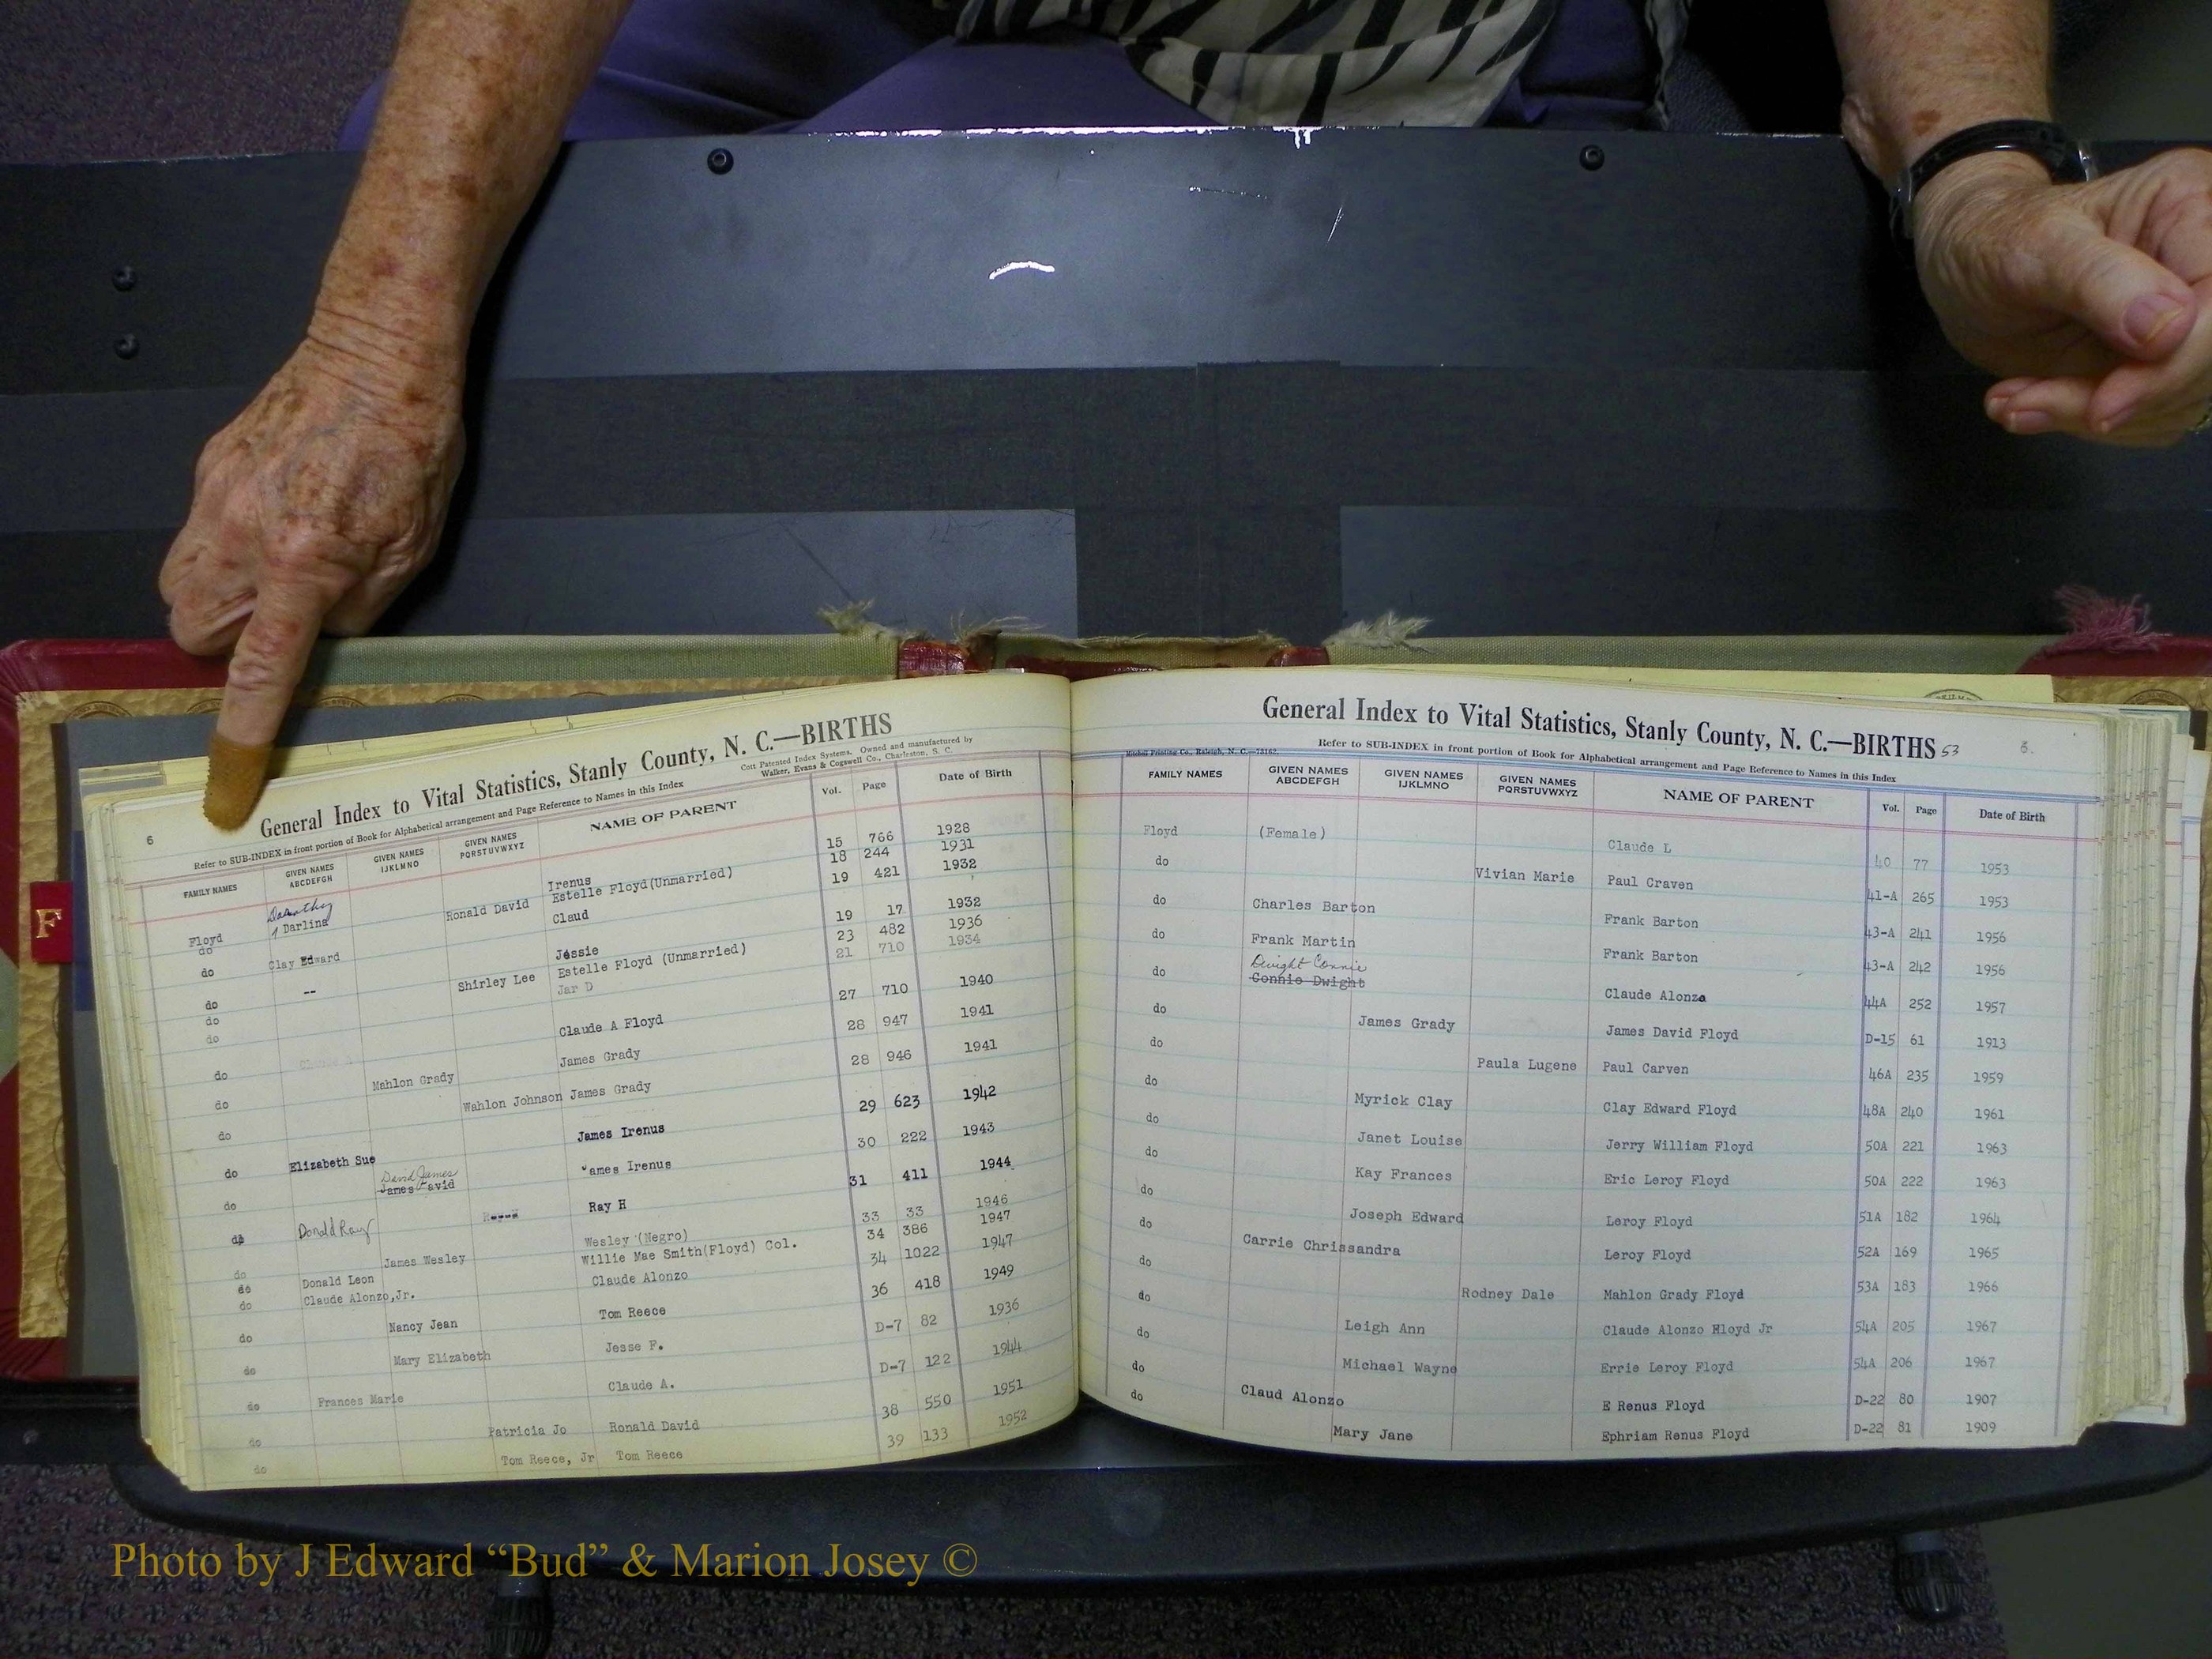 F
6
General Index to Vital Statistics, Stanly County, N. C.—BIRTHS
Cott Patented Index Systems. Owned and manufactured by
Walker, Evans & Cogswell Co., Charleston, S. C.
Refer to SUB-INDEX in front portion of Book for Alphabetical arrangement and Page Reference to Names in this Index
FAMILY NAMES GIVEN NAMES ABCDEFGH GIVEN NAMES IJKLMNO GIVEN NAMES PQRSTUVWXYZ NAME OF PARENT Vol. Page Date of Birth
Floyd Dorothy Darlina Irenus 15 766 1928
do Ronald David Estelle Floyd(Unmarried) 18 244 1931
do Clay Edward Claud 19 421 1932
do -- Jessie 19 17 1932
do Shirley Lee Estelle Floyd (Unmarried) 23 482 1936
do Jar D 21 710 1934
do Claude A Floyd 27 710 1940
do Mahlon Grady James Grady 28 947 1941
do Wahlon Johnson James Grady 28 946 1941
do Elizabeth Sue James Irenus 29 623 1942
do David James James David ames Irenus 30 222 1943
do Donald Ray Ray H 31 411 1944
do James Wesley Wesley (Negro) 33 33 1946
do Donald Leon Willie Mae Smith(Floyd) Col. 34 386 1947
do Claude Alonzo,Jr. Claude Alonzo 34 1022 1947
do Nancy Jean Tom Reece 36 418 1949
do Mary Elizabeth Jesse F. D-7 82 1936
do Frances Marie Claude A. D-7 122 1944
do Patricia Jo Ronald David 38 550 1951
do Tom Reece, Jr Tom Reece 39 133 1952
General Index to Vital Statistics, Stanly County, N. C.—BIRTHS 53
6.
Mitchell Printing Co., Raleigh, N. C.
Refer to SUB-INDEX in front portion of Book for Alphabetical arrangement and Page Reference to Names in this Index
FAMILY NAMES GIVEN NAMES ABCDEFGH GIVEN NAMES IJKLMNO GIVEN NAMES PQRSTUVWXYZ NAME OF PARENT Vol. Page Date of Birth
Floyd (Female) Claude L 40 77 1953
do Vivian Marie Paul Craven 41-A 265 1953
do Charles Barton Frank Barton 43-A 241 1956
do Frank Martin Frank Barton 43-A 242 1956
do Dwight Connie Connie Dwight Claude Alonzo 44A 252 1957
do James Grady James David Floyd D-15 61 1913
do Paula Lugene Paul Carven 46A 235 1959
do Myrick Clay Clay Edward Floyd 48A 240 1961
do Janet Louise Jerry William Floyd 50A 221 1963
do Kay Frances Eric Leroy Floyd 50A 222 1963
do Joseph Edward Leroy Floyd 51A 182 1964
do Carrie Chrissandra Leroy Floyd 52A 169 1965
do Rodney Dale Mahlon Grady Floyd 53A 183 1966
do Leigh Ann Claude Alonzo Hloyd Jr 54A 205 1967
do Michael Wayne Errie Leroy Floyd 54A 206 1967
do Claud Alonzo E Renus Floyd D-22 80 1907
do Mary Jane Ephriam Renus Floyd D-22 81 1909
Photo by J Edward “Bud” & Marion Josey ©